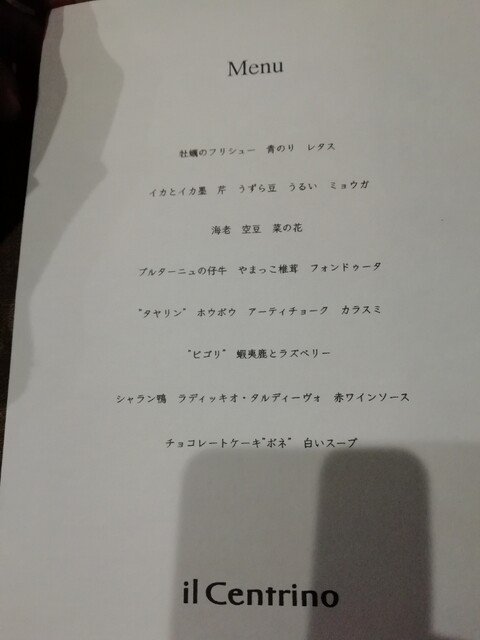 Menu
牡蠣のフリシュー 青のり レタス
イカとイカ墨 芹 うずら豆 うるい ミョウガ
海老 空豆 菜の花
ブルターニュの仔牛 やまっこ椎茸 フォンドゥータ
"タヤリン" ホウボウ アーティチョーク カラスミ
"ビゴリ" 蝦夷鹿とラズベリー
シャラン鴨 ラディッキオ・タルディーヴォ 赤ワインソース
チョコレートケーキ"ボネ" 白いスープ
il Centrino